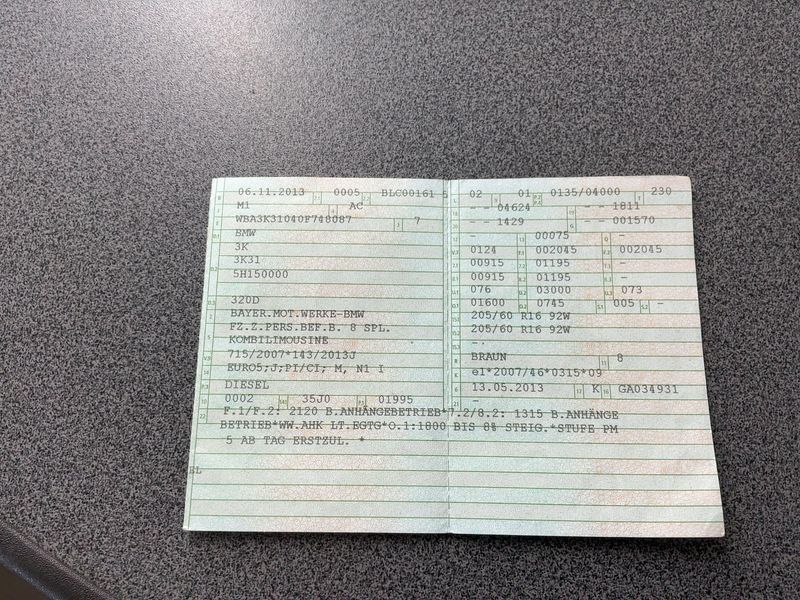 06.11.2013 0005 BLC00161 5
M1 AC
WBA3K31040F748087 7
BMW
3K
3K31
5H150000
320D
BAYER.MOT.WERKE-BMW
FZ.Z.PERS.BEF.B. 8 SPL.
KOMBILIMOUSINE
715/2007*143/2013J
EURO5;J;PI/CI; M, N1 I
DIESEL
0002 35J0 01995
02 01 0135/04000 230
- - 04624 - - 1811
- - 1429 - - 001570
- 00075 -
0124 002045 002045
00915 01195 -
00915 01195 -
076 03000 073
01600 0745 005 -
205/60 R16 92W
205/60 R16 92W
- -
BRAUN 8
e1*2007/46*0315*09
13.05.2013 K GA034931
-
F.1/F.2: 2120 B.ANHÄNGEBETRIEB*7.2/8.2: 1315 B.ANHÄNGE
BETRIEB*WW.AHK LT.EGTG*O.1:1800 BIS 8% STEIG.*STUFE PM
5 AB TAG ERSTZUL. *
EL